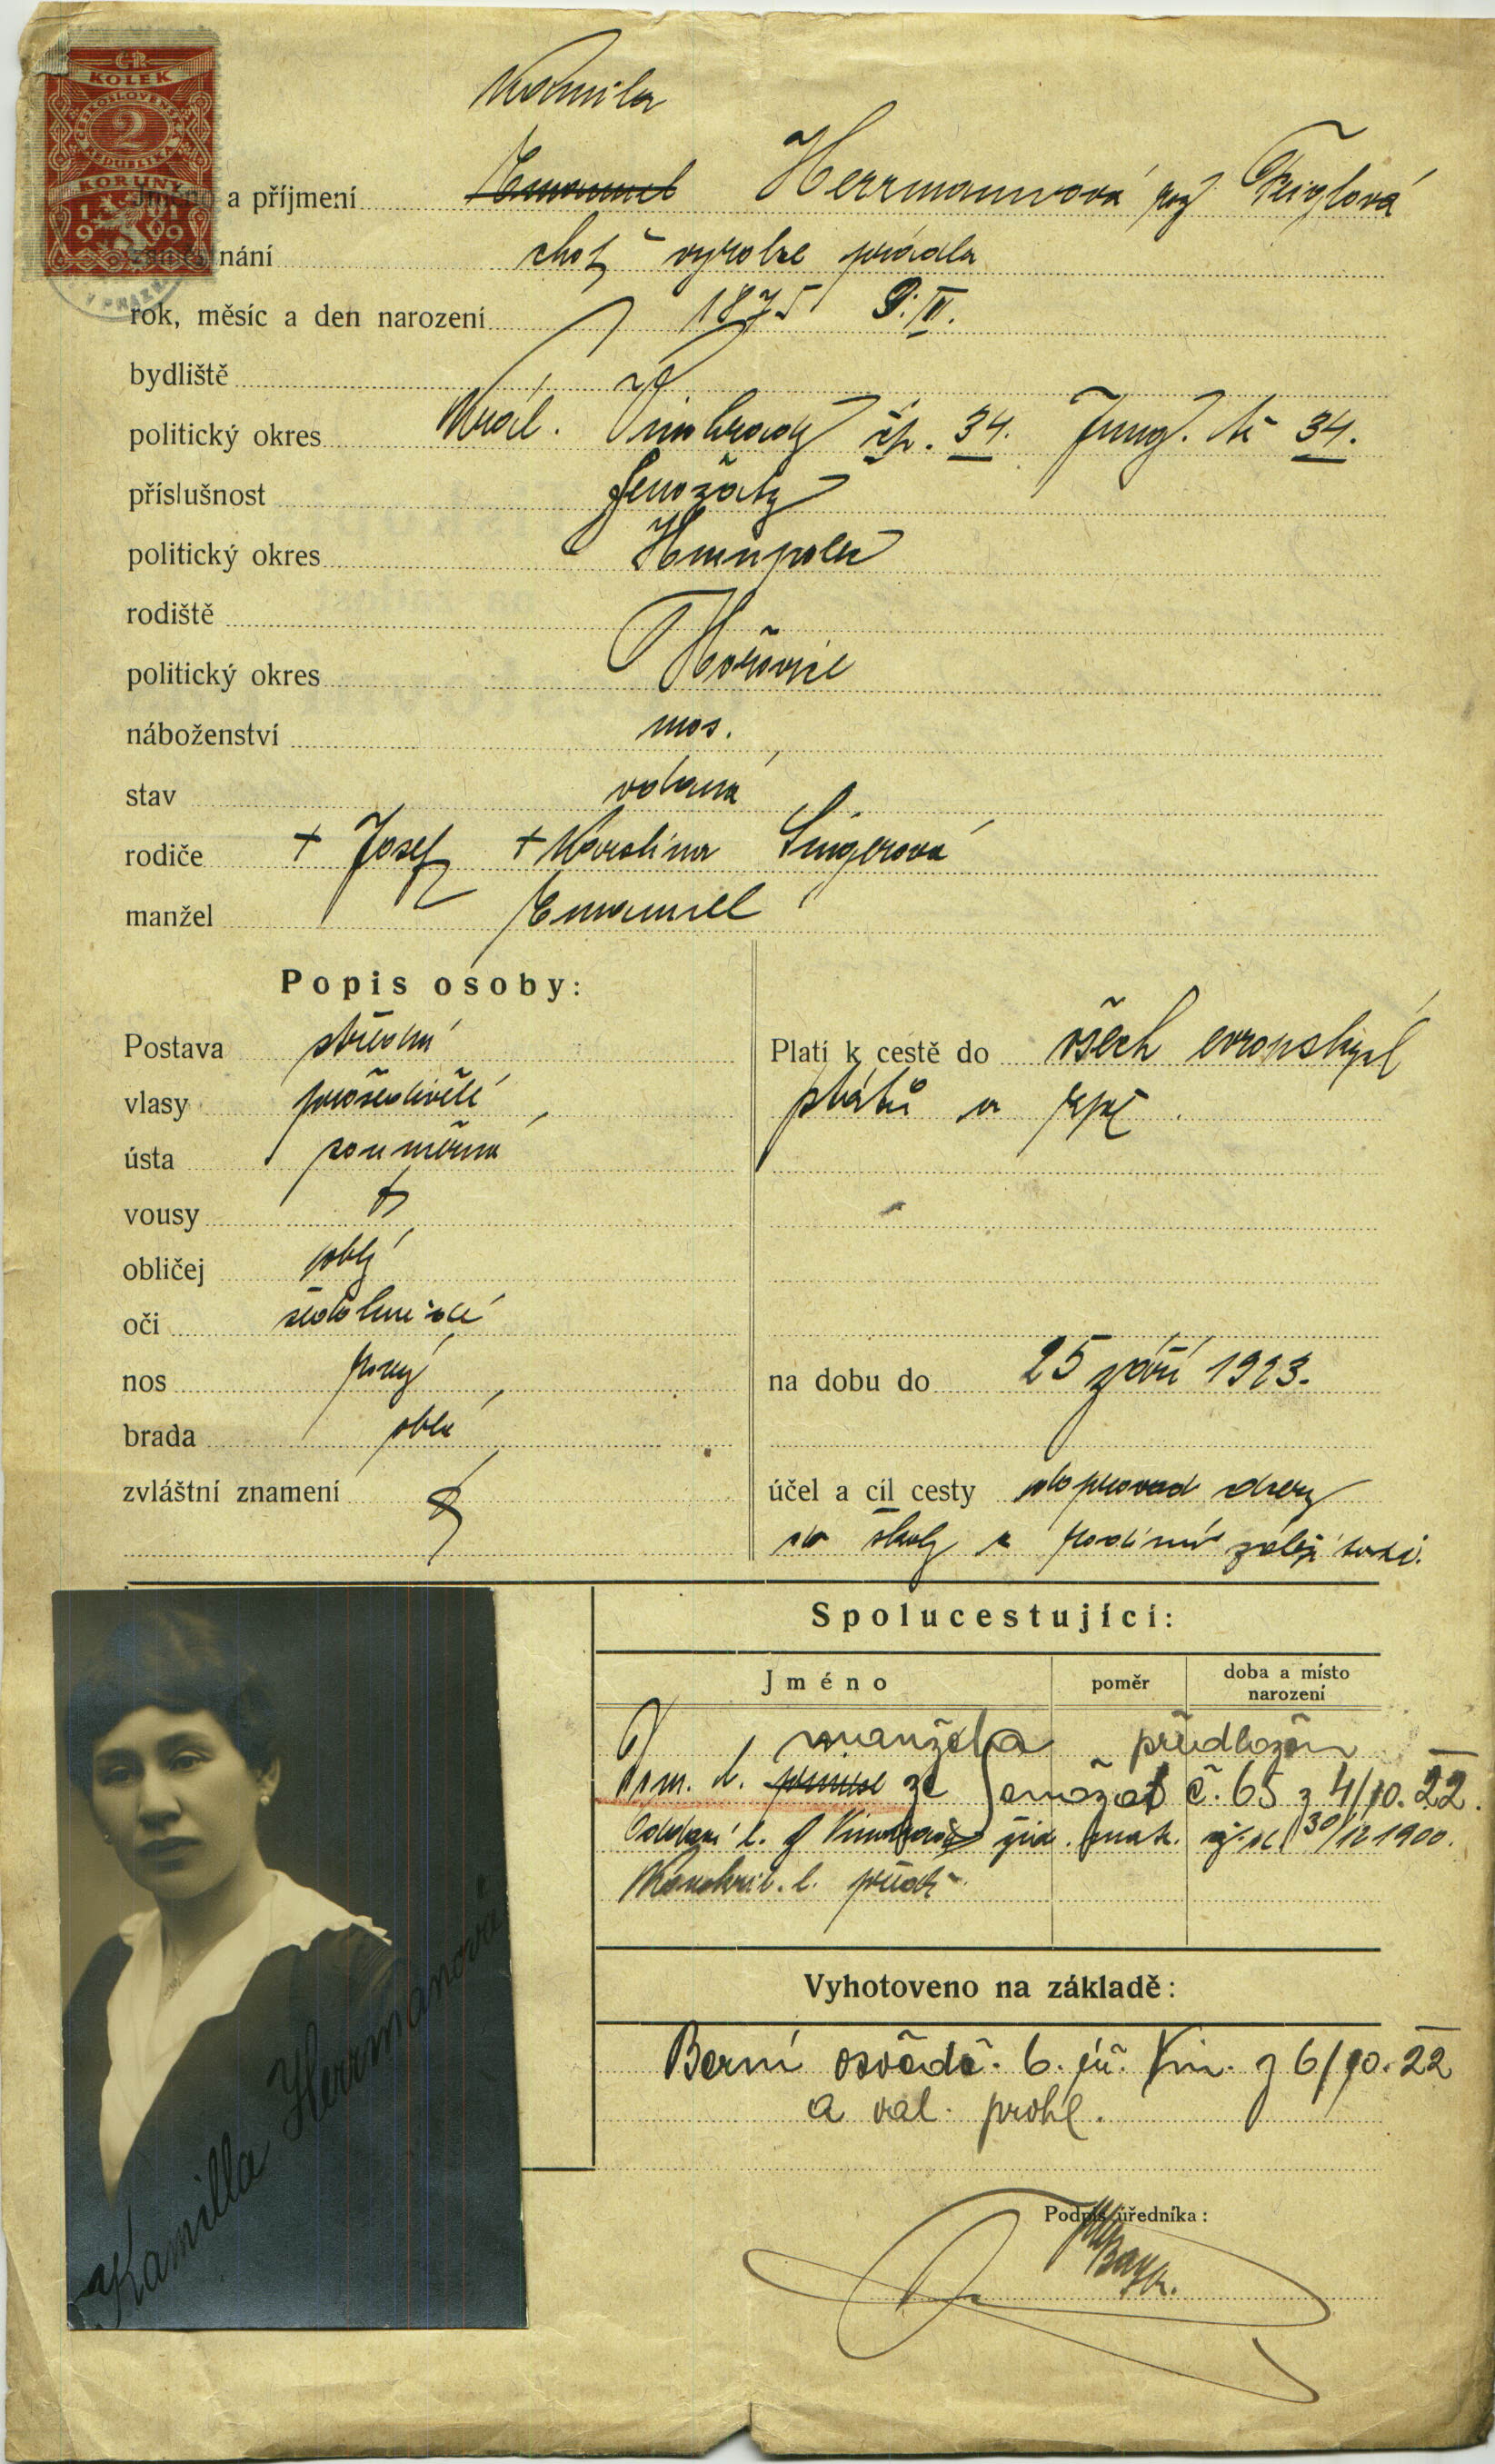 ČR
KOLEK
ČESKOSLOVENSKÁ
2
REPUBLIKA
KORUNY
1919
V PRAZE
Kamila
Jméno a příjmení Emanuel Herrmannová roz Feiglová
zaměstnání choť výrobce prádla
rok, měsíc a den narození 1875 9. IV.
bydliště
politický okres Král. Vinohrady čp. 34. Jung. tř 34.
příslušnost Senožaty
politický okres Humpolec
rodiště
politický okres Hořovice
náboženství mos.
stav vdaná
rodiče + Josef + Karolina Singerová
manžel Emanuel
Popis osoby:
Postava střední
vlasy prošedivělé
ústa souměrná
vousy
obličej oblý
oči šedohnědé
nos rovný
brada oblá
zvláštní znamení
Platí k cestě do všech evropských
států a zpět.
na dobu do 25 září 1923.
účel a cíl cesty doprovod dcery
do školy a rodinné záležitosti.
Spolucestující:
Jméno poměr doba a místo narození
U manžela předložen
Dom. l. ze Senožat č. 65 z 4/10. 22.
Oddací l. z Vinohrad žid. mat. 30/12 1900.
předl.
Vyhotoveno na základě:
Berní osvědč. b. úř. Vin. z 6/10. 22
a val. prohl.
Podpis úředníka:
Kamilla Herrmanová